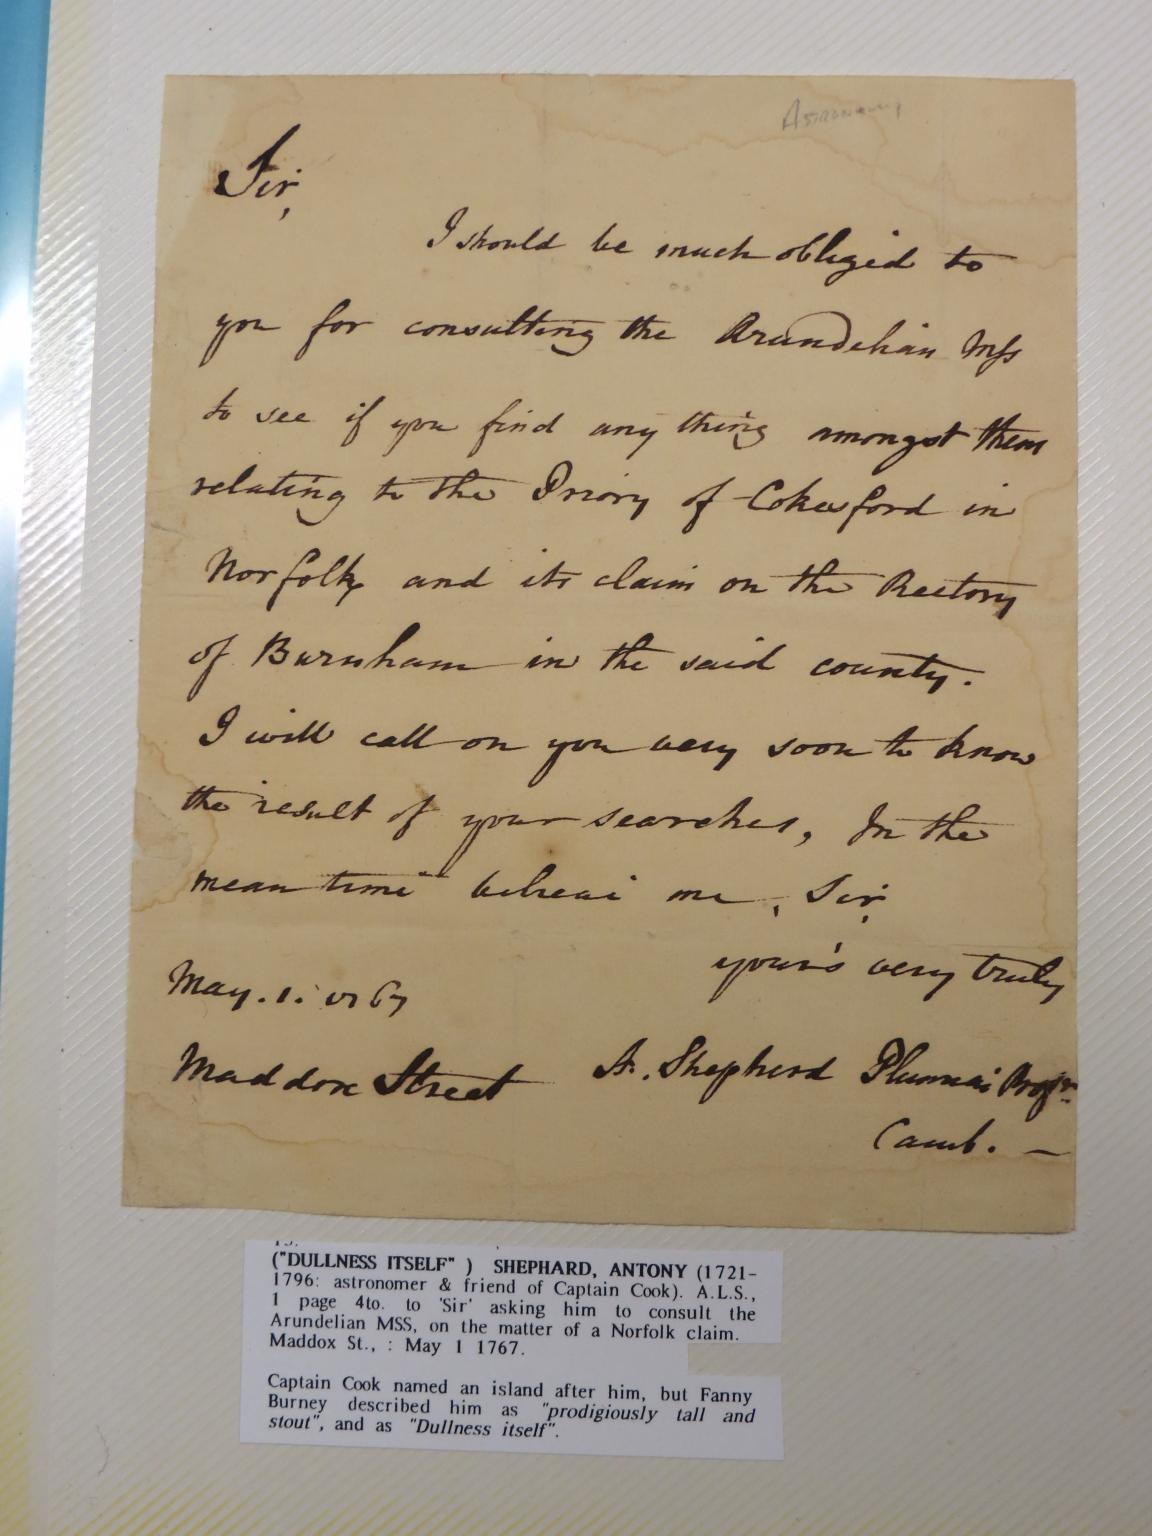 Astronomy
Sir,
I should be much obliged to
you for consulting the Arundelian Mss
to see if you find any thing amongst them
relating to the Priory of Cokesford in
Norfolk and its claim on the Rectory
of Burnham in the said county.
I will call on you very soon to know
the result of your searches, In the
mean time believe me, Sir,
your's very truly
May. 1. 1767
Maddox Street A. Shepherd Plumian Profsr
Camb. —
("DULLNESS ITSELF" ) SHEPHARD, ANTONY (1721-
1796: astronomer & friend of Captain Cook). A.L.S.,
1 page 4to. to 'Sir' asking him to consult the
Arundelian MSS, on the matter of a Norfolk claim.
Maddox St., : May 1 1767.
Captain Cook named an island after him, but Fanny
Burney described him as "prodigiously tall and
stout", and as "Dullness itself".